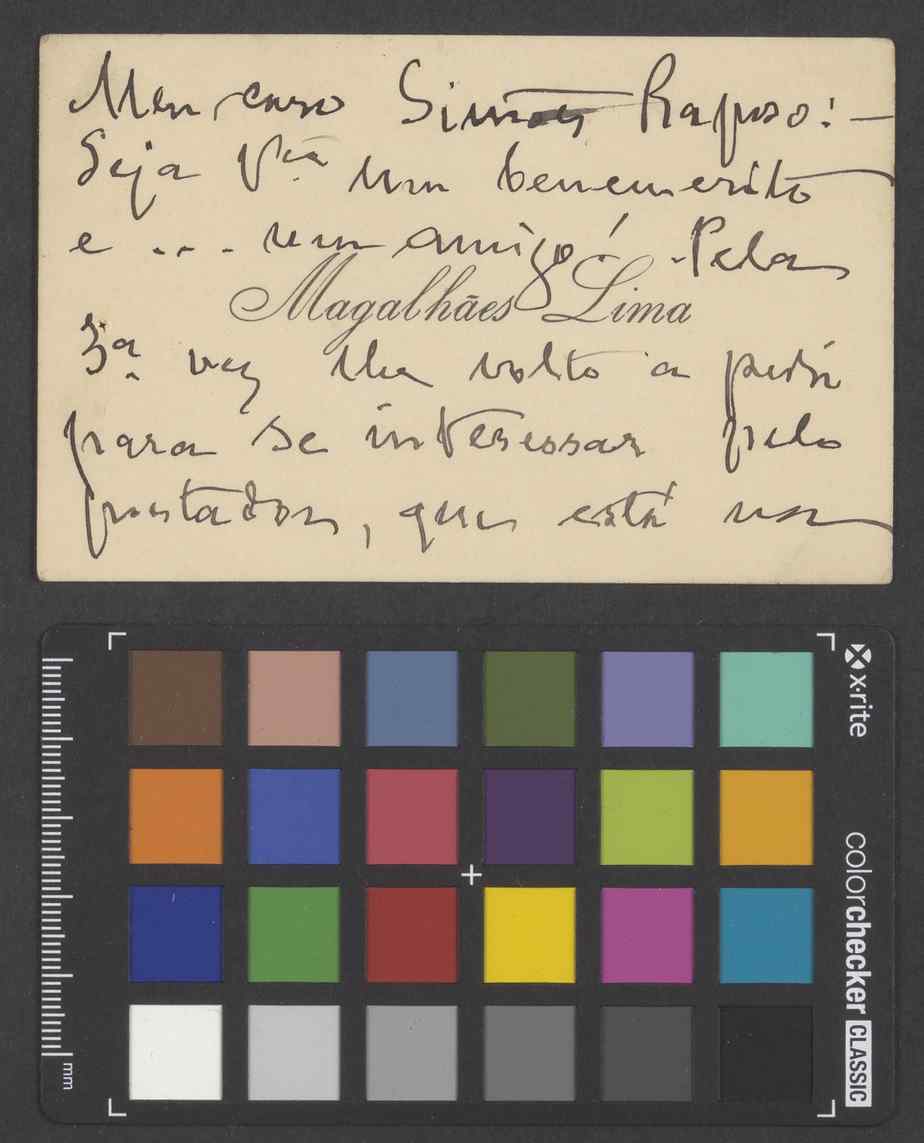 Meu caro Simões Raposo: —
Seja V.cia um benemerito
e ... um amigo! Pela
Magalhães Lima
3ª vez lhe volto a pedir
para se interessar pelo
portador, que está na
x·rite
colorchecker CLASSIC
mm